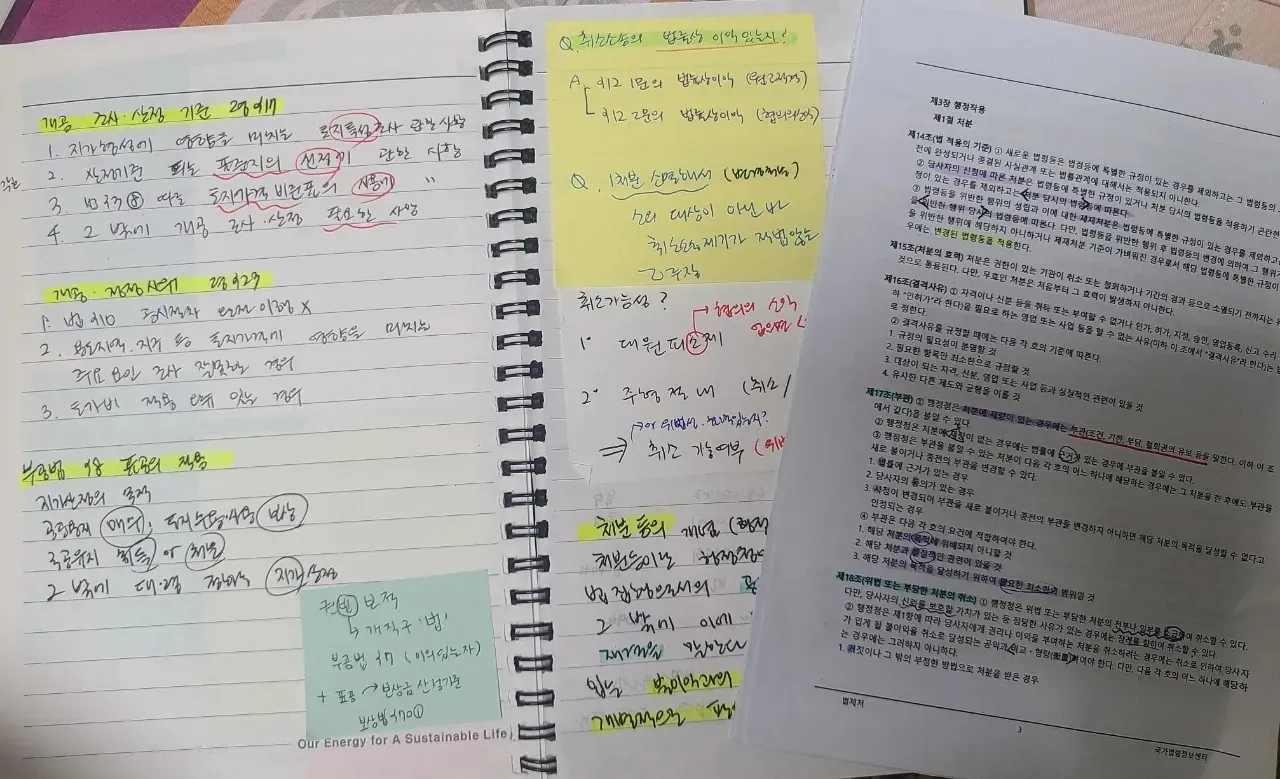 개공 조사·산정 기준 영§17
1. 지가형성에 영향을 미치는 토지특성조사 관한 사항
2. 산정기준 되는 표준지의 선정에 관한 사항
3. 법 §3⑧ 따른 토지가격비준표의 사용에 〃
4. 그 밖에 개공 조사·산정 필요한 사항
개공·정정사유 영§23
1. 법 §10 공시절차 완전 이행 X
2. 용도지역·지구 등 토지가격에 영향을 미치는
주요 요인 조사 잘못한 경우
3. 토가비 적용 오류 있는 경우
부공법 §8 표공의 적용
지가산정의 목적
공공용지 매입, 토지수용·사용 보상
국공유지 취득 or 처분
그 밖에 대령 정하는 지가 산정
↳ 개직구 '법'
부공법 §7 (이의있는자)
+ 표공 → 보상금 산정기준
보상법 §70①
Our Energy for A Sustainable Life
Q. 취소소송의 법률상 이익 있는지?
A. §12 1문의 법률상이익 (원고적격)
§12 2문의 법률상이익 (협의의소익)
Q. 1처분 소멸해서
소의 대상이 아닌바
취소소송제기가 적법않는
주장
취소가능성?
→ 협의의 소익
1°
2°
⇒ 취소 가능여부
처분 등의 개념
그 밖에 이에
법률
개별적으로
제3장 행정작용
제1절 처분
제14조(법 적용의 기준) ① 새로운 법령등은 법령등에 특별한 규정이 있는 경우를 제외하고는 그 법령
전에 완성되거나 종결된 사실관계 또는 법률관계에 대해서는 적용되지 아니한다.
② 당사자의 신청에 따른 처분은 법령등에 특별한 규정이 있거나 처분 당시의 법령등을 적용하기 곤란한
정이 있는 경우를 제외하고는 처분 당시의 법령등에 따른다.
③ 법령등을 위반한 행위의 성립과 이에 대한 제재처분은 법령등에 특별한 규정이 있는 경우를 제외하고
을 위반한 행위 당시의 법령등에 따른다. 다만, 법령등을 위반한 행위 후 법령등의 변경에 의하여 그 행위
을 위반한 행위에 해당하지 아니하거나 제재처분 기준이 가벼워진 경우로서 해당 법령등에 특별한 규정이
우에는 변경된 법령등을 적용한다.
제15조(처분의 효력) 처분은 권한이 있는 기관이 취소 또는 철회하거나 기간의 경과 등으로 소멸되기 전까지는 유
것으로 통용된다. 다만, 무효인 처분은 처음부터 그 효력이 발생하지 아니한다.
제16조(결격사유) ① 자격이나 신분 등을 취득 또는 부여할 수 없거나 인가, 허가, 지정, 승인, 영업등록, 신고 수리
하 "인허가"라 한다)을 필요로 하는 영업 또는 사업 등을 할 수 없는 사유(이하 이 조에서 "결격사유"라 한다)는 법
로 정한다.
② 결격사유를 규정할 때에는 다음 각 호의 기준에 따른다.
1. 규정의 필요성이 분명할 것
2. 필요한 항목만 최소한으로 규정할 것
3. 대상이 되는 자격, 신분, 영업 또는 사업 등과 실질적인 관련이 있을 것
4. 유사한 다른 제도와 균형을 이룰 것
제17조(부관) ① 행정청은 처분에 재량이 있는 경우에는 부관(조건, 기한, 부담, 철회권의 유보 등을 말한다. 이하 이 조
에서 같다)을 붙일 수 있다.
② 행정청은 처분에 재량이 없는 경우에는 법률에 근거가 있는 경우에 부관을 붙일 수 있다.
③ 행정청은 부관을 붙일 수 있는 처분이 다음 각 호의 어느 하나에 해당하는 경우에는 그 처분을 한 후에도 부관을
새로 붙이거나 종전의 부관을 변경할 수 있다.
1. 법률에 근거가 있는 경우
2. 당사자의 동의가 있는 경우
3. 사정이 변경되어 부관을 새로 붙이거나 종전의 부관을 변경하지 아니하면 해당 처분의 목적을 달성할 수 없다고
인정되는 경우
④ 부관은 다음 각 호의 요건에 적합하여야 한다.
1. 해당 처분의 목적에 위배되지 아니할 것
2. 해당 처분과 실질적인 관련이 있을 것
3. 해당 처분의 목적을 달성하기 위하여 필요한 최소한의 범위일 것
제18조(위법 또는 부당한 처분의 취소) ① 행정청은 위법 또는 부당한 처분의 전부나 일부를 소급하여 취소할 수 있다.
다만, 당사자의 신뢰를 보호할 가치가 있는 등 정당한 사유가 있는 경우에는 장래를 향하여 취소할 수 있다.
② 행정청은 제1항에 따라 당사자에게 권리나 이익을 부여하는 처분을 취소하려는 경우에는 취소로 인하여 당사자
가 입게 될 불이익을 취소로 달성되는 공익과 비교·형량(衡量)하여야 한다. 다만, 다음 각 호의 어느 하나에 해당하
는 경우에는 그러하지 아니하다.
1. 거짓이나 그 밖의 부정한 방법으로 처분을 받은 경우
법제처
3
국가법령정보센터